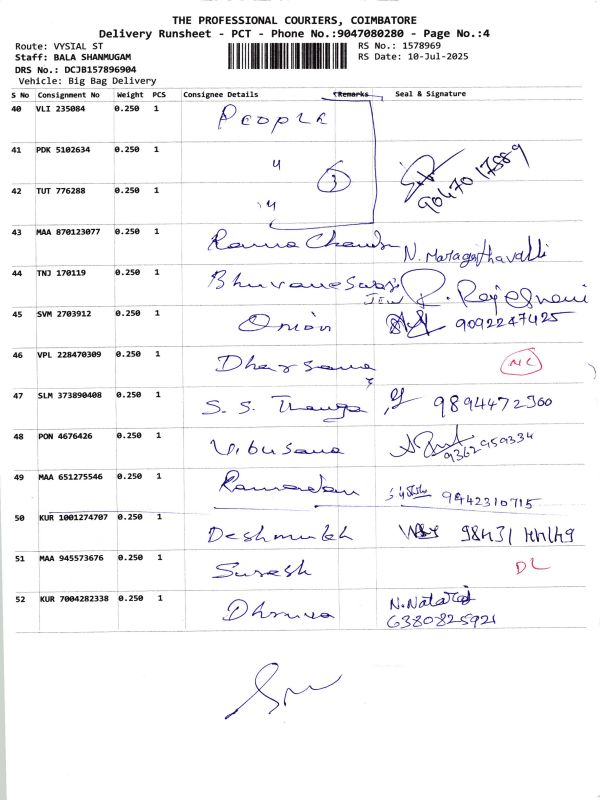 THE PROFESSIONAL COURIERS, COIMBATORE
Delivery Runsheet - PCT - Phone No.:9047080280 - Page No.:4
Route: VYSIAL ST
RS No.: 1578969
Staff: BALA SHANMUGAM
RS Date: 10-Jul-2025
DRS No.: DCJB157896904
Vehicle: Big Bag Delivery
S No Consignment No Weight PCS Consignee Details Remarks Seal & Signature
40 VLI 235084 0.250 1 People
41 PDK 5102634 0.250 1 " 3 90470 17889
42 TUT 776288 0.250 1 "
43 MAA 870123077 0.250 1 Rama Chandr N. Maragathavalli
44 TNJ 170119 0.250 1 Bhuvaneswari Jew R. Rajeshwari
45 SVM 2703912 0.250 1 Onion 9092247425
46 VPL 228470309 0.250 1 Dharsana NL
47 SLM 373890408 0.250 1 S. S. Thanga 9894472500
48 PON 4676426 0.250 1 Vibusana 9362959334
49 MAA 651275546 0.250 1 Ramadan 9442310715
50 KUR 1001274707 0.250 1 Deshmukh 98431 44449
51 MAA 945573676 0.250 1 Suresh DL
52 KUR 7004282338 0.250 1 Dhruva N. Nataraj
6380825921